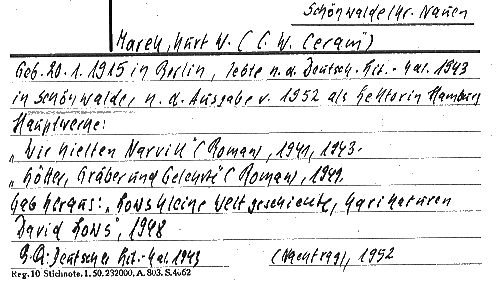 Schönwalde Kr. Nauen
Marek, Kurt W. (C. W. Ceram)
Geb. 20.1.1915 in Berlin, lebte n. d. Deutsch. Lit.-Kal. 1943
in Schönwalde, n. d. Ausgabe v. 1952 als Lektor in Hamburg
Hauptwerke:
„Wir hielten Narvik" (Roman), 1941, 1943.
„Götter, Gräber und Gelehrte" (Roman), 1949.
Gab heraus: „Lows kleine Weltgeschichte, Karikaturen
David Lows", 1948
Deutscher Lit.-Kal. 1943 (Nachtrag), 1952
Reg. 10 Stichnote. 1. 50. 232000, A. 803. S. 4062